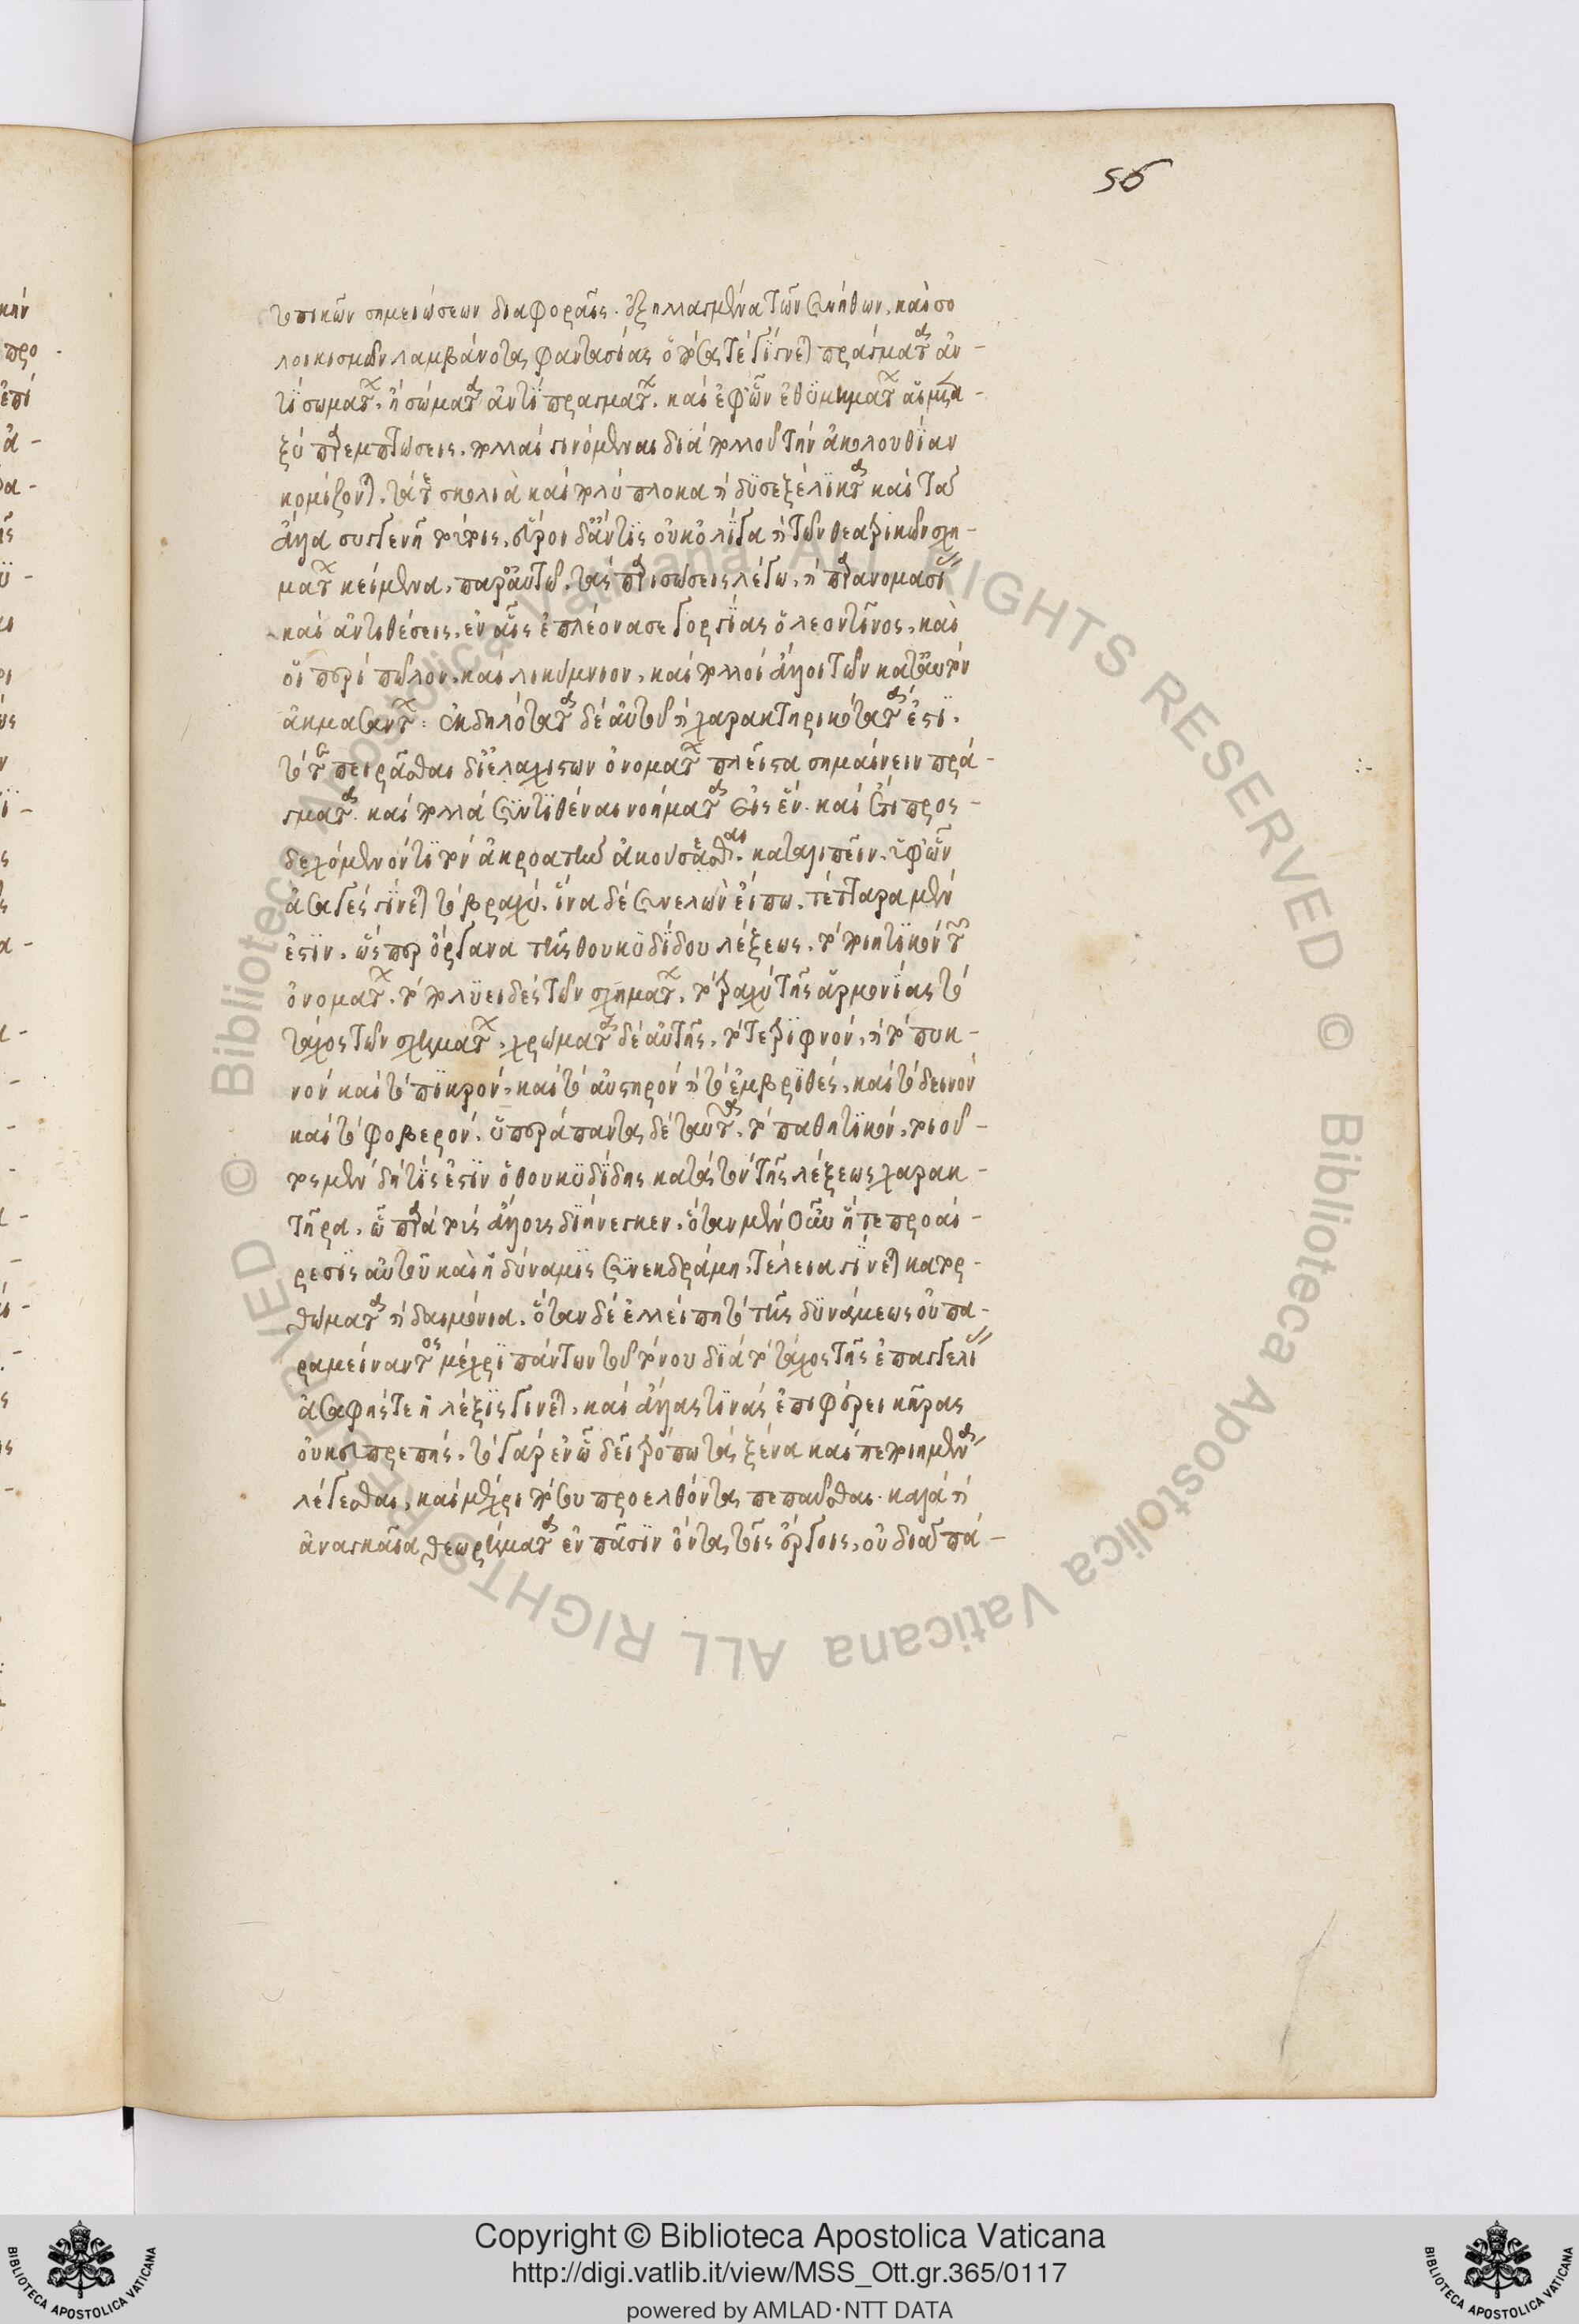 56
τοπικῶν σημειώσεων διαφοραῖς. ἐξηλλαγμένα τῶν συνήθων, καὶ σο
λοικισμῶν λαμβάνοντα φαντασίας ὁπόσα τὲ γίγνεται πράγματα ἀν-
τὶ σωμάτων, ἢ σώματα ἀντὶ πραγμάτων. καὶ ἐφ' ὧν ἐθυμημάτων αἱ μετα-
ξὺ παρεμπτώσεις, πολλαὶ γινόμεναι διὰ πολλοῦ τὴν ἀκολουθίαν
κομίζονται, τά τε σκολιὰ καὶ πολύπλοκα καὶ δυσεξέλικτα καὶ τὰ
ἄλλα συγγενῆ τούτοις, εὕροι δ' ἄν τις οὐκ ὀλίγα καὶ τῶν θεατρικῶν σχη-
μάτων κείμενα, παρ' αὐτῷ, τὰς παρισώσεις λέγω, καὶ παρανομασί
καὶ ἀντιθέσεις, ἐν αἷς ἐπλεόνασε Γοργίας ὁ λεοντῖνος, καὶ
οἱ περὶ πῶλον, καὶ λικύμνιον, καὶ πολλοὶ ἄλλοι τῶν κατ' αὐτὸν
ἀκμασάντων: ἐκδηλότατα δὲ αὐτοῦ καὶ χαρακτηρικότατά ἐστι.
τό τε πειρᾶσθαι δι' ἐλαχίστων ὀνομάτων πλεῖστα σημαίνειν πρά-
γματα. καὶ πολλὰ συντιθέναι νοήματα εἰς ἕν. καὶ ἔτι προς-
δεχόμενόν τι τὸν ἀκροατὴν ἀκούσεσθαι. καταλιπεῖν. ὑφ' ὧν
ἀσαφὲς γίνεται τὸ βραχύ. ἵνα δὲ συνελὼν εἴπω, τέτταρα μέν
ἐστιν, ὥσπερ ὄργανα τῆς θουκυδίδου λέξεως, τὸ ποιητικὸν τῶν
ὀνομάτων, τὸ πολυειδὲς τῶν σχημάτων, τὸ τραχὺ τῆς ἁρμονίας τὸ
τάχος τῶν σημάτων, χρώματα δὲ αὐτῆς, τό τε στριφνόν, καὶ τὸ πυκ-
νὸν καὶ τὸ πικρόν, καὶ τὸ αὐστηρὸν καὶ τὸ ἐμβριθές, καὶ τὸ δεινὸν
καὶ τὸ φοβερόν. ὑπὲρ ἅπαντα δὲ ταῦτα, τὸ παθητικόν, τοιοῦ-
τος μὲν δή τίς ἐστιν ὁ θουκυδίδης κατὰ τὸν τῆς λέξεως χαρακ-
τῆρα, ᾧ παρὰ τοὺς ἄλλους διήνεγκεν, ὅταν μὲν οὖν ἥ τε προαί-
ρεσις αὐτοῦ καὶ ἡ δύναμις συνεκδράμῃ, τέλεια γίνεται κατορ-
θώματα καὶ δαιμόνια. ὅταν δὲ ἐλλείπῃ τὸ τῆς δυνάμεως οὐ πα-
ραμείναντος μέχρι πάντων τοῦ τόνου διὰ τὸ τάχος τῆς ἐπαγγελί
ἀσαφής τε ἡ λέξις γίνεται, καὶ ἄλλας τινὰς ἐπιφέρει κῆρας
οὐκ εὐπρεπής. τὸ γὰρ ἐν ᾧ δεῖ τρόπῳ τὰ ξένα καὶ πεποιημένα
λέγεσθαι, καὶ μέχρι πόσου προελθόντα πεπαῦσθαι. καλὰ καὶ
ἀναγκαῖα θεωρήματα ἐν πᾶσιν ὄντα τοῖς ἔργοις, οὐ διαπα-
Copyright © Biblioteca Apostolica Vaticana
http://digi.vatlib.it/view/MSS_Ott.gr.365/0117
powered by AMLAD·NTT DATA